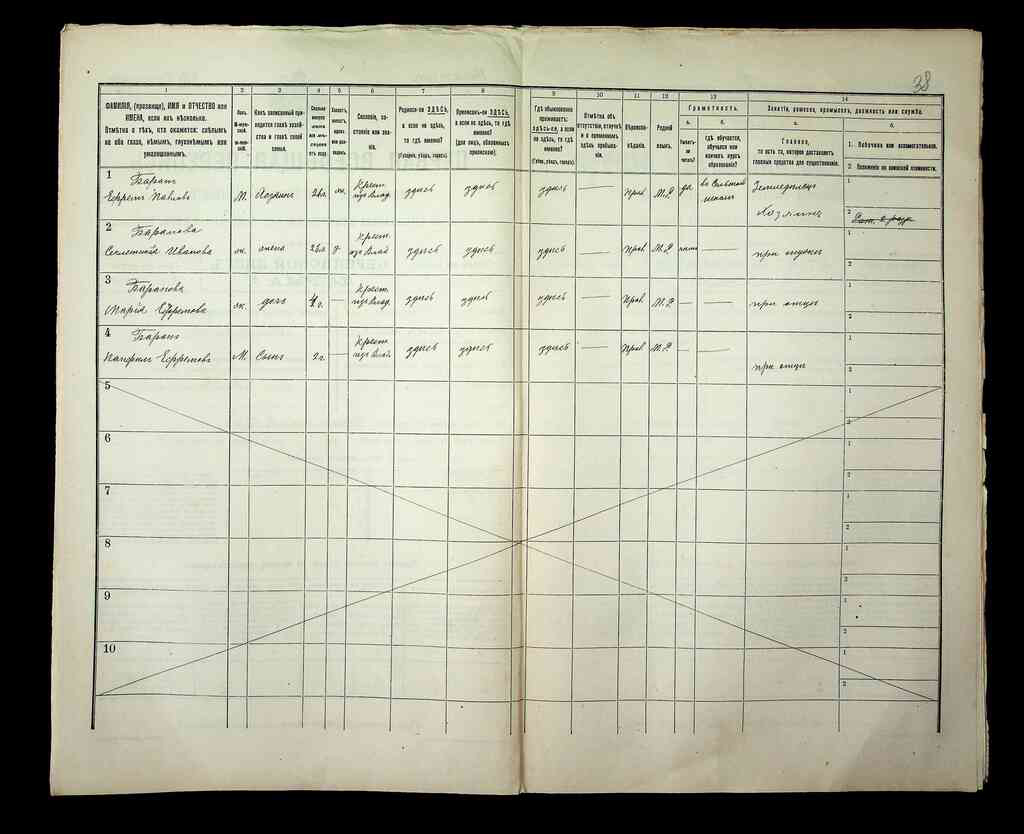 38
1 2 3 4 5 6 7 8 9 10 11 12 13 14
ФАМИЛІЯ, (прозвище), ИМЯ и ОТЧЕСТВО или
ИМЕНА, если ихъ нѣсколько.
Отмѣтка о тѣхъ, кто окажется: слѣпымъ
на оба глаза, нѣмымъ, глухонѣмымъ или
умалишеннымъ.
Какъ записанный при-
ходится главѣ хозяй-
ства и главѣ своей
семьи.
Сословіе, со-
стояніе или зва-
ніе.
Родился-ли ЗДѢСЬ,
а если не здѣсь,
то гдѣ
именно?
(Губернія, уѣздъ, городъ).
Приписанъ-ли ЗДѢСЬ,
а если не здѣсь, то гдѣ
именно?
(для лицъ, обязанныхъ
припискою).
Гдѣ обыкновенно
проживаетъ:
здѣсь-ли, а если
не здѣсь, то гдѣ
именно?
(Губер., уѣздъ, городъ).
Отмѣтка объ
отсутствіи, отлучкѣ
и о временномъ
здѣсь пребыва-
ніи.
Вѣроиспо-
вѣданіе.
Родной
языкъ.
Грамотность.
а.
Умѣетъ-
ли
читать?
б.
гдѣ обучается,
обучался или
кончилъ курсъ
образованія?
Занятіе, ремесло, промыселъ, должность или служба.
а.
Главное,
то есть то, которое доставляетъ
главныя средства для существованія.
б.
1. Побочное или вспомогательное.
2. Положеніе по воинской повинности.
1
Баранъ
Ефремъ Павловъ
М.
Хозяинъ
Крест.
изъ Влад.
здѣсь
здѣсь
здѣсь
—
Прав
М.Р
да
въ Сельской
школѣ
Земледѣлецъ
Хозяинъ
1
2
2
Баранова
Ивановна
жена
Крест.
изъ Влад
здѣсь
здѣсь
здѣсь
—
Прав
М.Р
—
при мужѣ
1
2
3
Баранова
Марія Ефремова
дочь
4 г.
—
Крест.
изъ Влад.
здѣсь
здѣсь
здѣсь
—
Прав
М.Р
—
—
при отцѣ
1
2
4
Баранъ
Ефремовъ
М.
Сынъ
2 г.
—
Крест.
изъ Влад
здѣсь
здѣсь
здѣсь
—
Прав
М.Р
—
—
при отцѣ
1
2
5
1
2
6
1
2
7
1
2
8
1
2
9
1
2
10
1
2